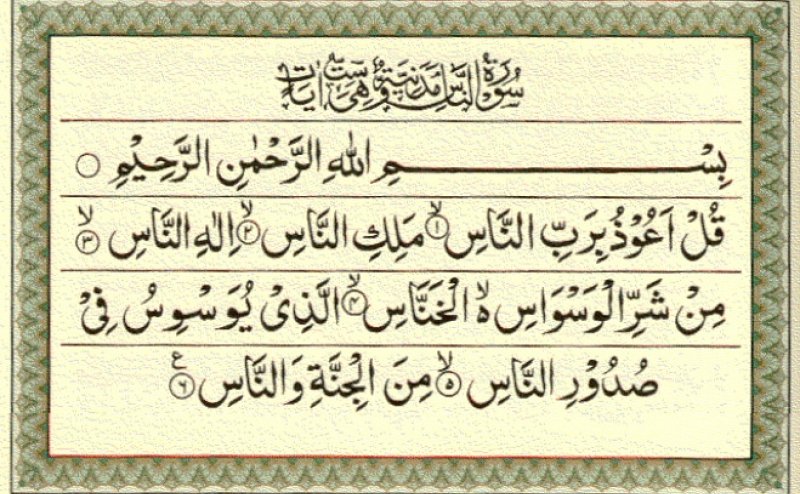 سُوْرَةُ النَّاسِ مَدَنِيَّةٌ وَّهِيَ سِتُّ اٰيَاتٍ
بِسْــــــــمِ اللهِ الرَّحْمٰنِ الرَّحِيْمِ ○
قُلْ اَعُوْذُ بِرَبِّ النَّاسِ ۙ﴿۱﴾ مَلِكِ النَّاسِ ۙ﴿۲﴾ اِلٰهِ النَّاسِ ۙ﴿۳﴾
مِنْ شَرِّ الْوَسْوَاسِ ۵ۙ الْخَنَّاسِ ۙ﴿۴﴾ الَّذِىْ يُوَسْوِسُ فِىْ
صُدُوْرِ النَّاسِ ۙ﴿۵﴾ مِنَ الْجِنَّةِ وَالنَّاسِ ﴿۶﴾ع